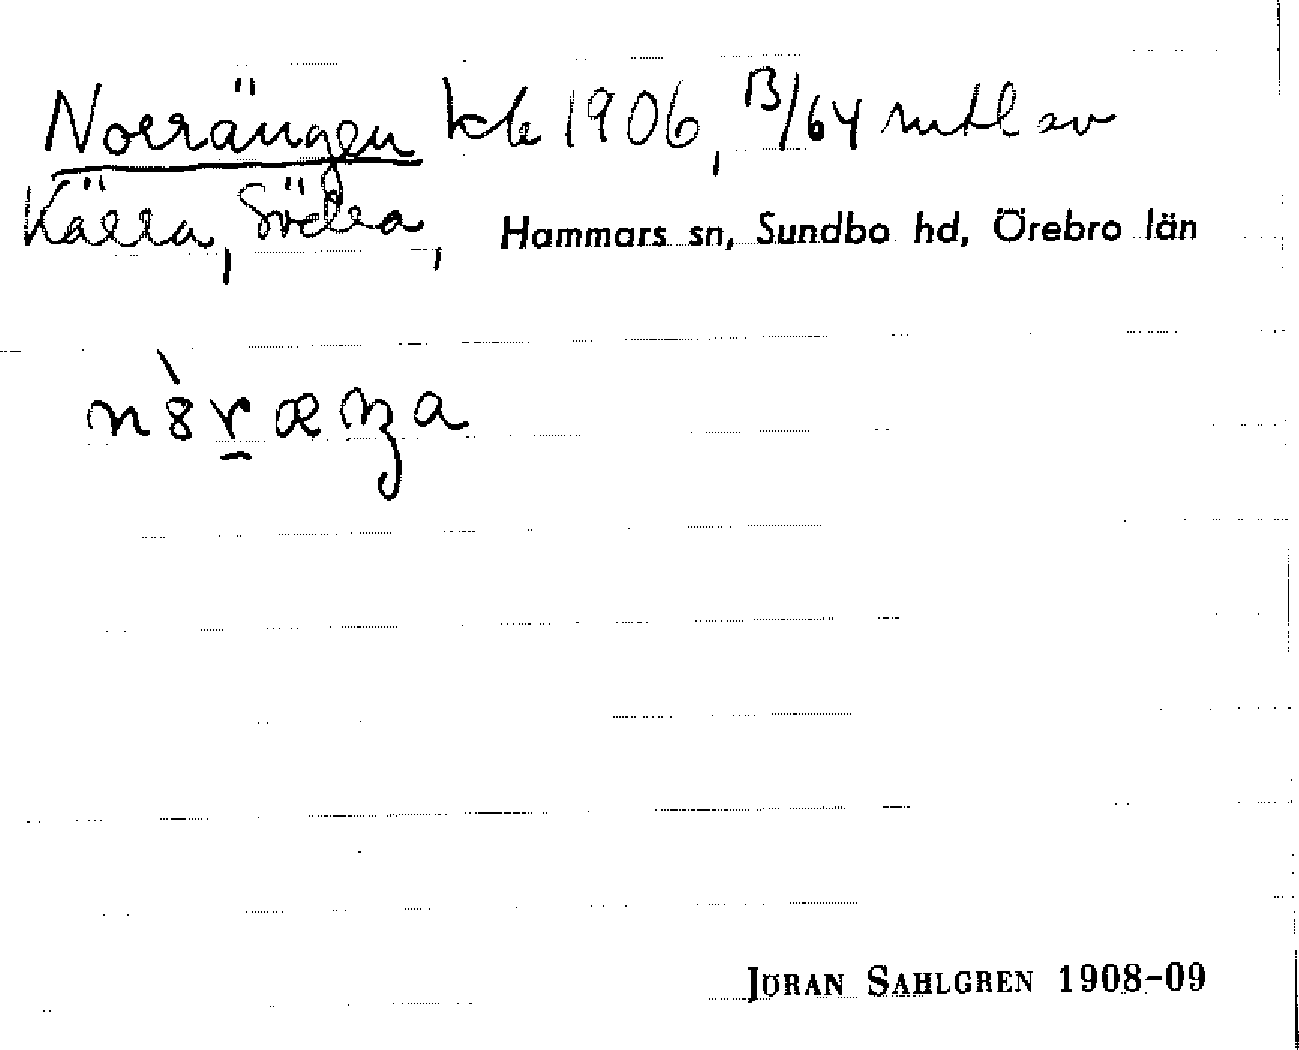 Norrängen kb 1906, 13/64 mtl av
Källa, Södra, Hammars sn, Sundbo hd, Örebro län
JÖRAN SAHLGREN 1908-09